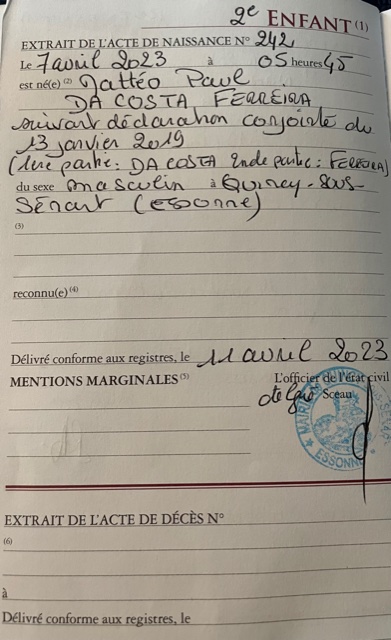 2e ENFANT (1)
EXTRAIT DE L'ACTE DE NAISSANCE N° 242
Le 7 avril 2023 à 05 heures 45
est né(e) (2) Mattéo Paul
DA COSTA FERREIRA
suivant déclaration conjointe du
13 janvier 2019
(1ère partie : DA COSTA 2nde partie : FERREIRA)
du sexe masculin à Quincy-sous-
Sénart (essonne)
(3)
reconnu(e) (4)
Délivré conforme aux registres, le 11 avril 2023
MENTIONS MARGINALES (5) L'officier de l'état civil
Sceau
MAIRIE
ESSONNE
EXTRAIT DE L'ACTE DE DÉCÈS N°
(6)
à
Délivré conforme aux registres, le